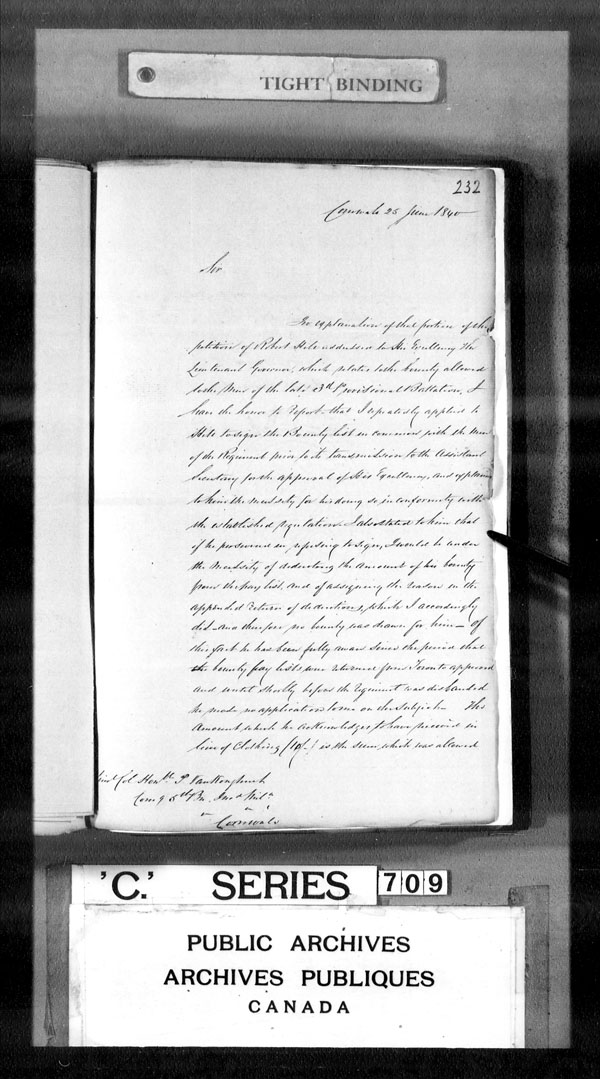 TIGHT BINDING
232
Cornwall 25 June 1840
Sir
In explanation of that portion of the
petition of Robert Hale addressed to His Excellency the
Lieutenant Governor, which relates to the bounty allowed
to the Men of the late 3rd Provisional Battalion, I
have the honor to report that I repeatedly applied to
Hale to sign the Bounty list in common with the Men
of the Regiment prior to its transmission to the Assistant
Secretary for the approval of His Excellency, and explained
to him the necessity for his doing so in conformity with
the established regulation. I also stated to him that
if he persevered in refusing to sign, I would be under
the necessity of deducting the amount of his bounty
from the pay list, and of assigning the reason in the
appended return of deductions, which I accordingly
did and therefore no bounty was drawn for him — Of
this fact he has been fully aware since the period that
the bounty pay lists were returned from Toronto approved
and until shortly before the Regiment was disbanded
he made no application to me on the subject. The
Amount which he acknowledges to have received in
lieu of Clothing (10/.) is the sum which was allowed
Col Honble P. Vankoughnet
Com g 5th Bn Inc Mila
Cornwall
'C.' SERIES 709
PUBLIC ARCHIVES
ARCHIVES PUBLIQUES
CANADA